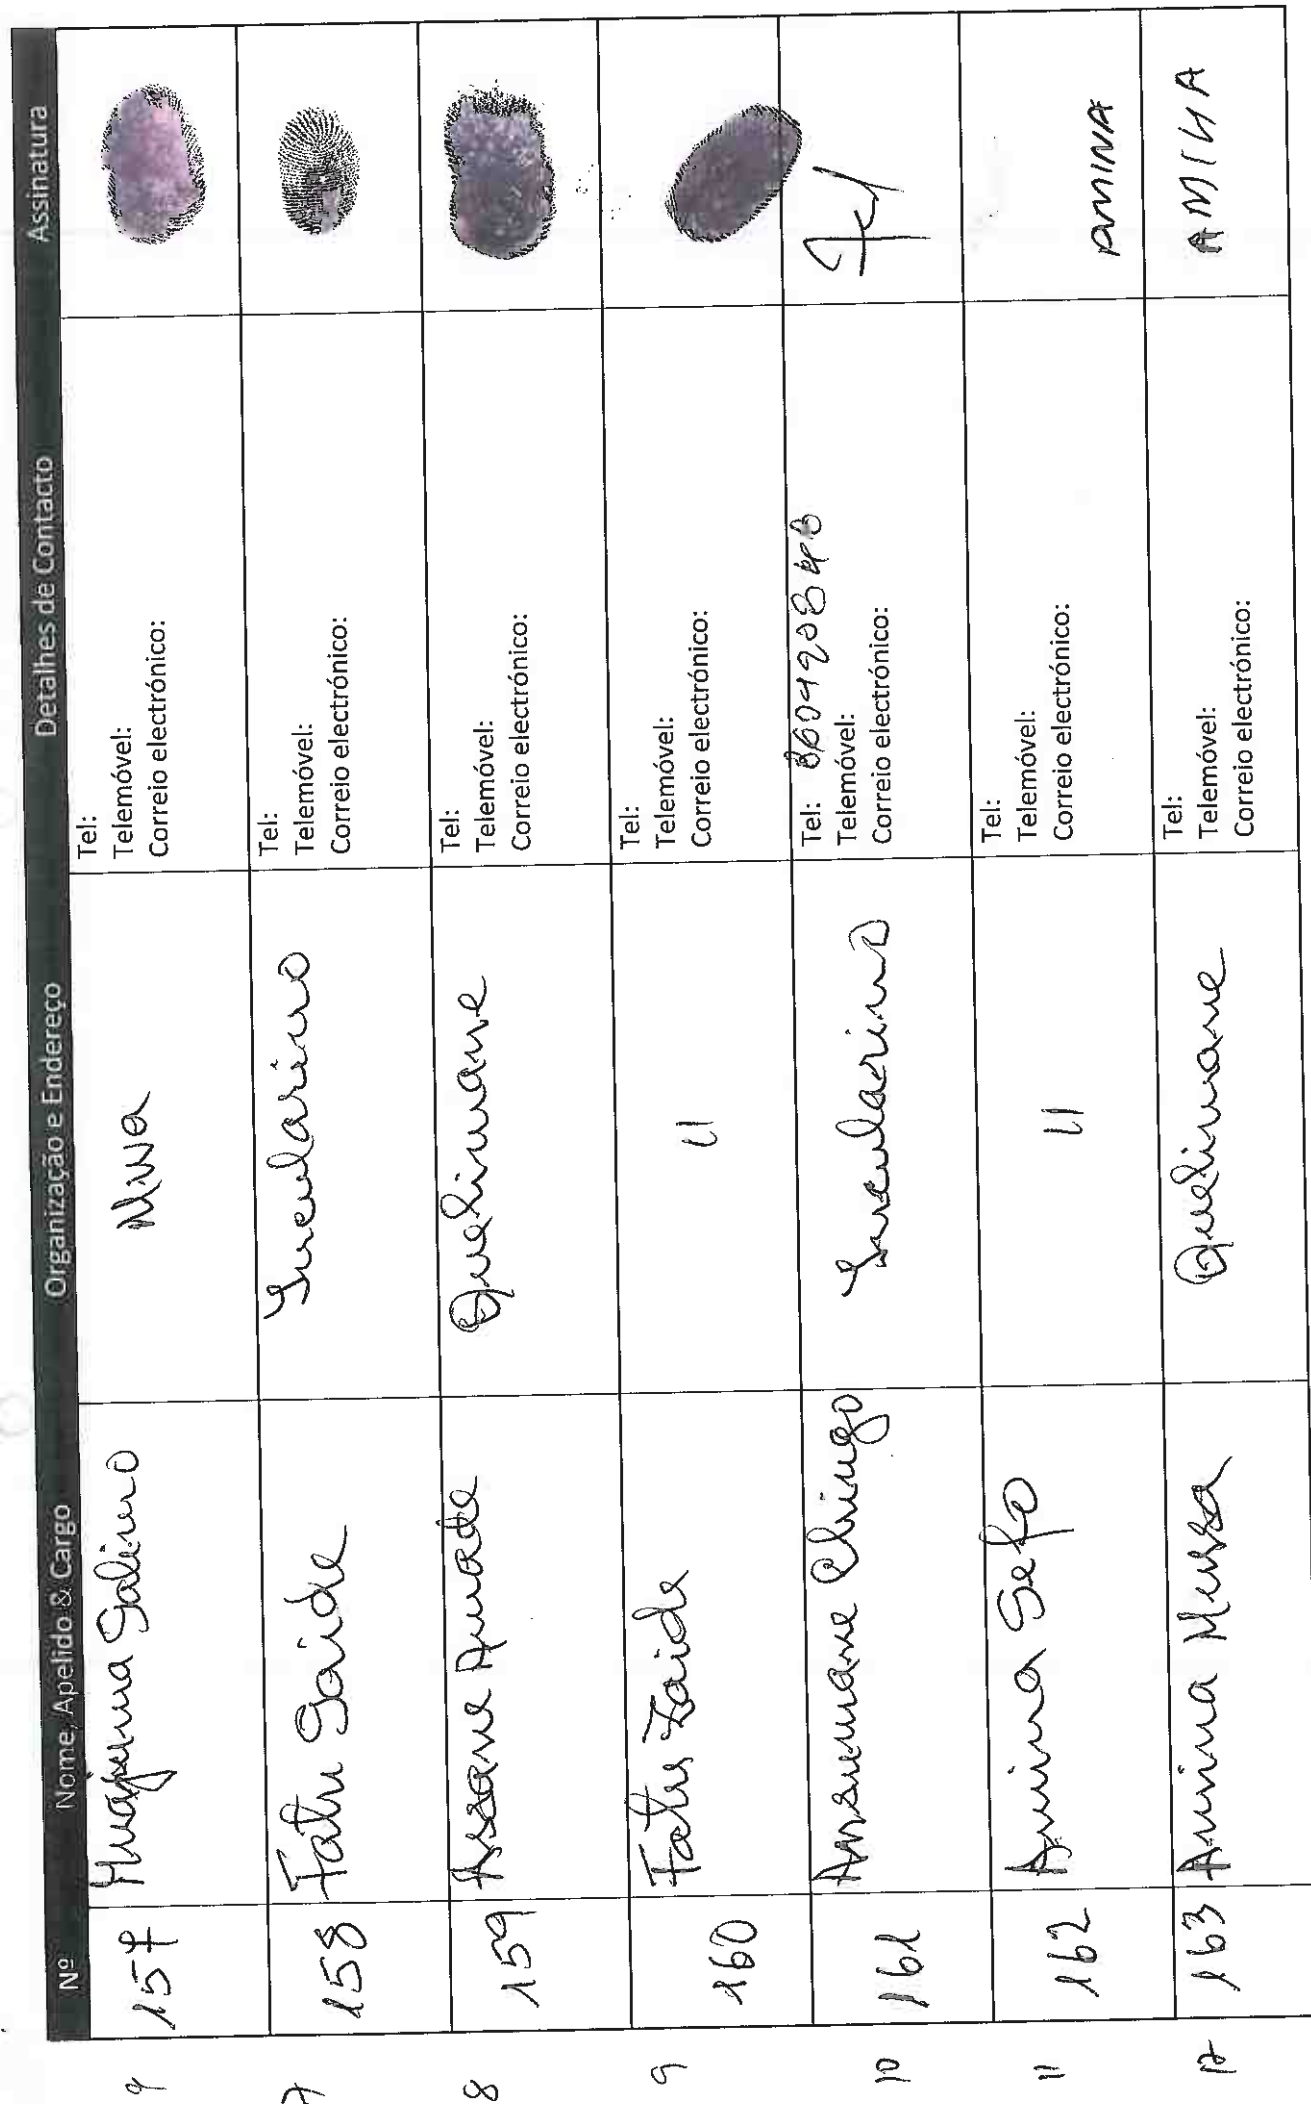 Nº Nome, Apelido & Cargo Organização e Endereço Detalhes de Contacto Assinatura
157 Salimo
Tel:
Telemóvel:
Correio electrónico:
7 158 Fatu Saide
Tel:
Telemóvel:
Correio electrónico:
8 159 Assane Amade Quelimane
Tel:
Telemóvel:
Correio electrónico:
9 160 Fatu Zaide 11
Tel:
Telemóvel:
Correio electrónico:
10 161 Ansumane Chingo
Tel:
Telemóvel:
Correio electrónico:
11 162 Amina Sefo 11 AMINA
Tel:
Telemóvel:
Correio electrónico:
12 163 Amina Mussa Quelimane
Tel:
Telemóvel:
Correio electrónico: